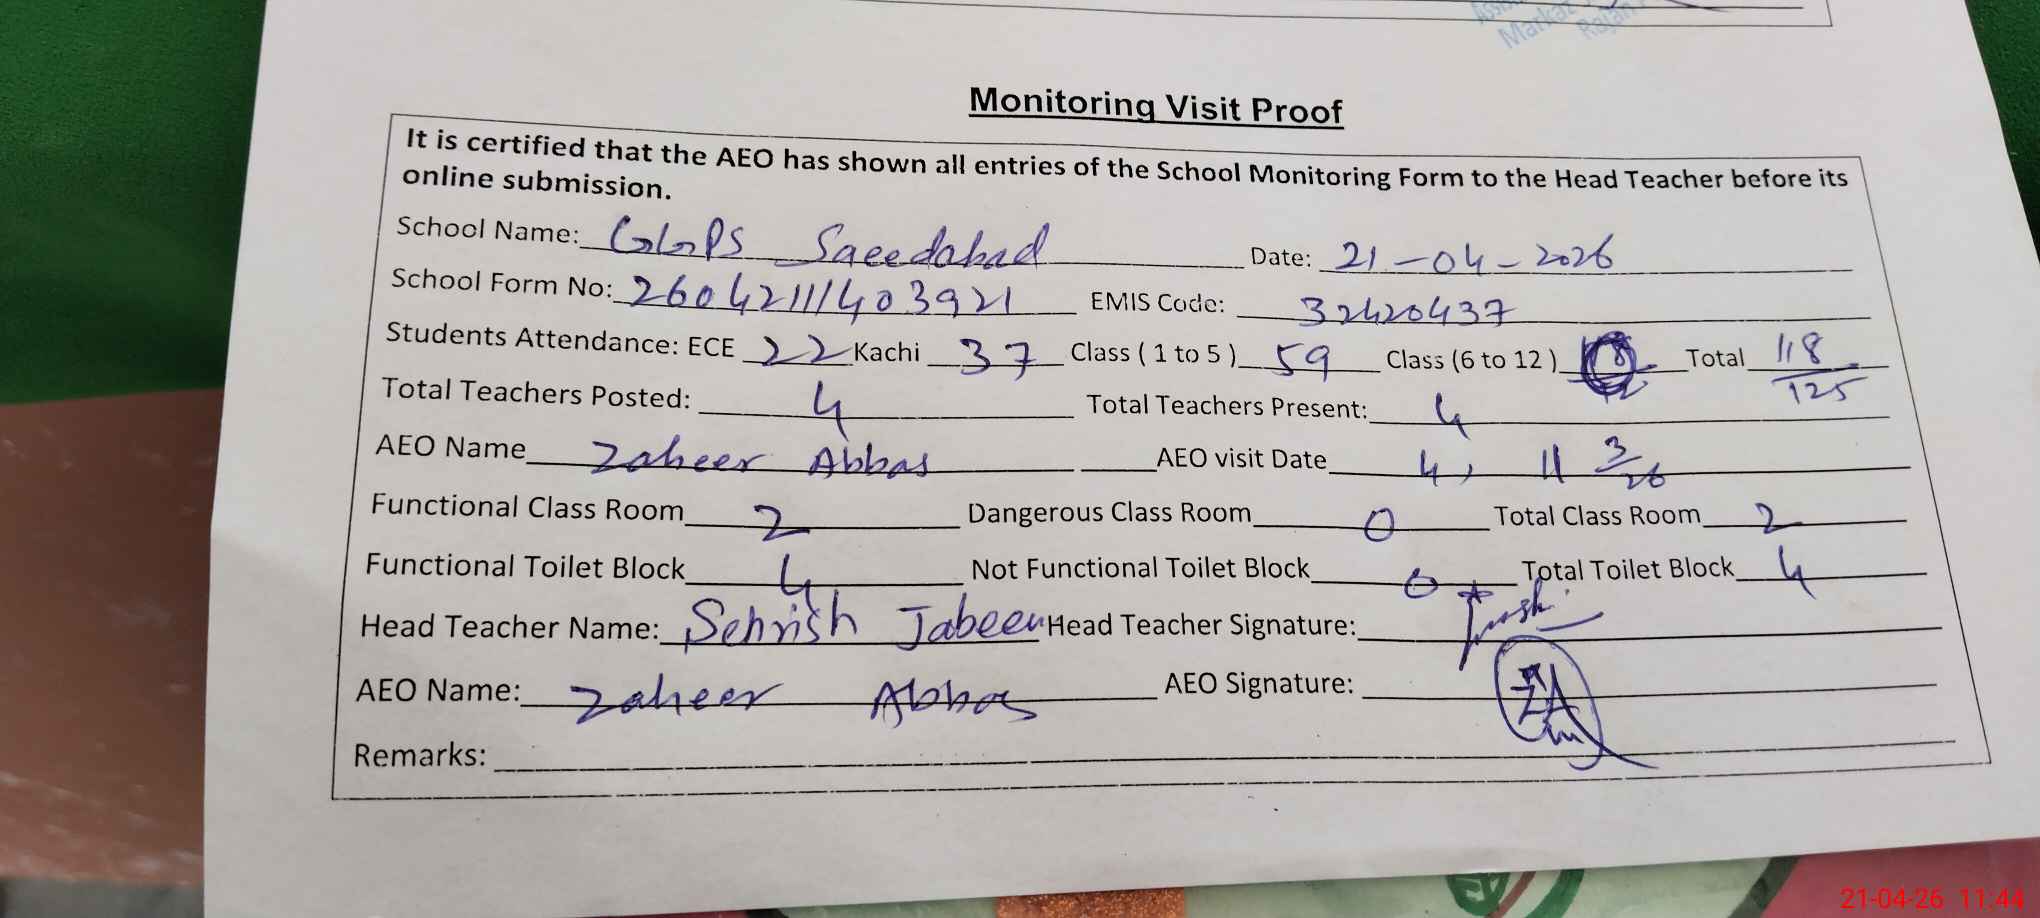 Markaz
Rajan
Monitoring Visit Proof
It is certified that the AEO has shown all entries of the School Monitoring Form to the Head Teacher before its
online submission.
School Name: GGPS Saeedabad Date: 21-04-2026
School Form No: 26042111403921 EMIS Code: 32420437
Students Attendance: ECE 22 Kachi 37 Class ( 1 to 5 ) 59 Class (6 to 12 ) Total 118/125
Total Teachers Posted: 4 Total Teachers Present: 4
AEO Name Zaheer Abbas AEO visit Date 4, 11 3/26
Functional Class Room 2 Dangerous Class Room 0 Total Class Room 2
Functional Toilet Block 4 Not Functional Toilet Block 0 Total Toilet Block 4
Head Teacher Name: Sehrish Jabeen Head Teacher Signature:
AEO Name: Zaheer Abbas AEO Signature: ZA
Remarks:
21-04-26 11:44